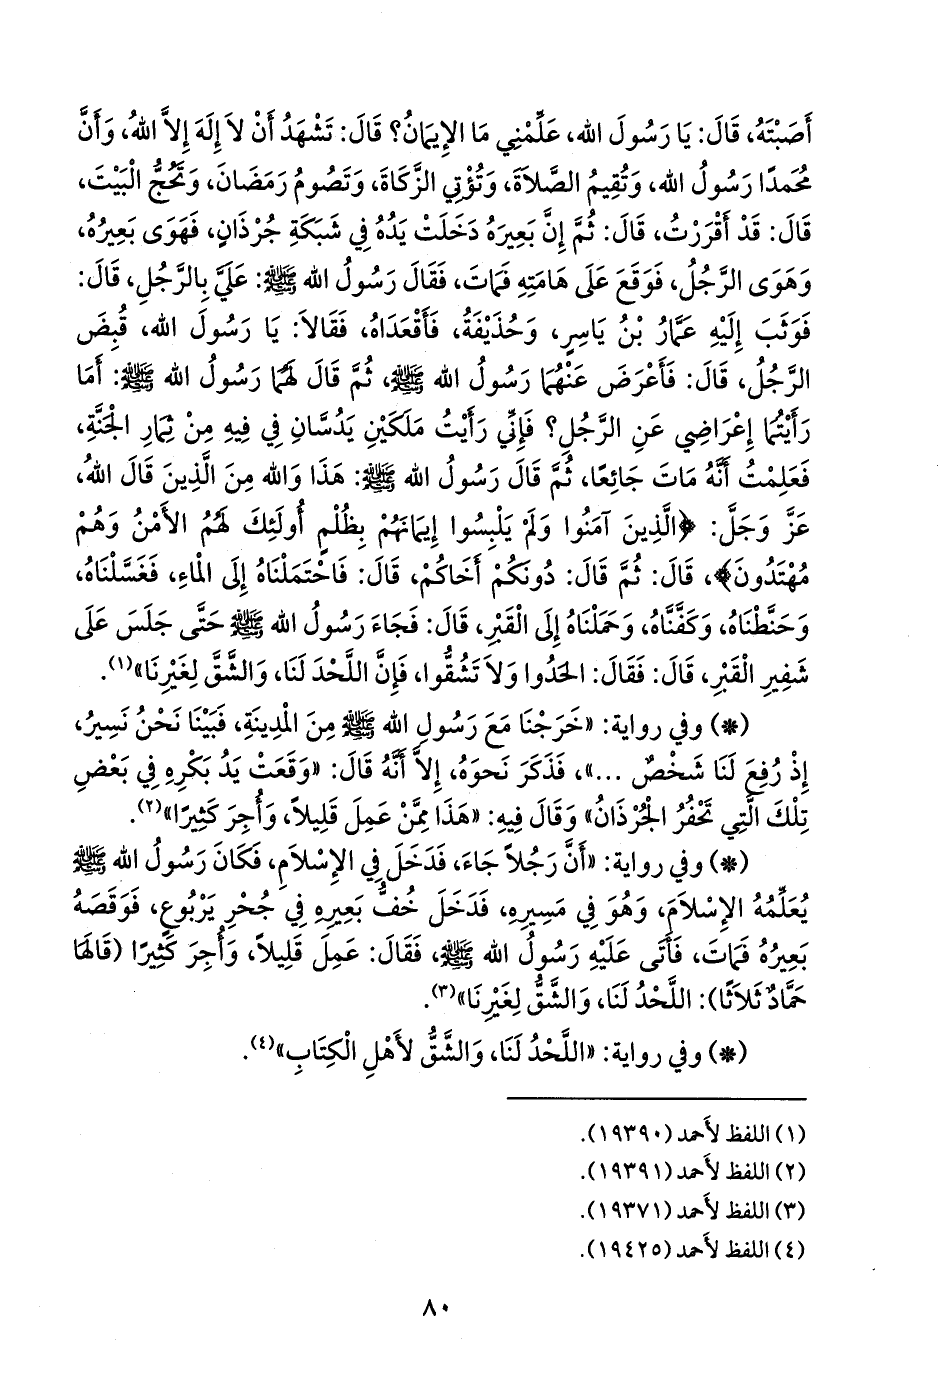 أَصَبْتَهُ، قَالَ: يَا رَسُولَ الله، عَلِّمْنِي مَا الإِيمَانُ؟ قَالَ: تَشْهَدُ أَنْ لاَ إِلَهَ إِلاَّ اللهُ، وَأَنَّ
مُحَمدًا رَسُولُ الله، وَتُقِيمُ الصَّلاَةَ، وَتُؤْتِي الزَّكَاةَ، وَتَصُومُ رَمَضَانَ، وَتَحُجُّ الْبَيْتَ،
قَالَ: قَدْ أَقْرَرْتُ، قَالَ: ثُمَّ إِنَّ بَعِيرَهُ دَخَلَتْ يَدُهُ فِي شَبَكَةِ جُرْذَانٍ، فَهَوَى بَعِيرُهُ،
وَهَوَى الرَّجُلُ، فَوَقَعَ عَلَى هَامَتِهِ فَمَاتَ، فَقَالَ رَسُولُ الله ﷺ: عَلَيَّ بِالرَّجُلِ، قَالَ:
فَوَثَبَ إِلَيْهِ عَمَّارُ بْنُ يَاسِرٍ، وَحُذَيْفَةُ، فَأَقْعَدَاهُ، فَقَالاَ: يَا رَسُولَ الله، قُبِضَ
الرَّجُلُ، قَالَ: فَأَعْرَضَ عَنْهُمَا رَسُولُ الله ﷺ، ثُمَّ قَالَ لَهُمَا رَسُولُ الله ﷺ: أَمَا
رَأَيْتُمَا إِعْرَاضِي عَنِ الرَّجُلِ؟ فَإِنِّي رَأَيْتُ مَلَكَيْنِ يَدُسَّانِ فِي فِيهِ مِنْ ثِمَارِ الْجَنَّةِ،
فَعَلِمْتُ أَنَّهُ مَاتَ جَائِعًا، ثُمَّ قَالَ رَسُولُ الله ﷺ: هَذَا وَالله مِنَ الَّذِينَ قَالَ اللهُ،
عَزَّ وَجَلَّ: ﴿الَّذِينَ آمَنُوا وَلَمْ يَلْبِسُوا إِيمَانَهُمْ بِظُلْمٍ أُولَئِكَ لَهُمُ الأَمْنُ وَهُمْ
مُهْتَدُونَ﴾، قَالَ: ثُمَّ قَالَ: دُونَكُمْ أَخَاكُمْ، قَالَ: فَاحْتَمَلْنَاهُ إِلَى الْمَاءِ، فَغَسَّلْنَاهُ،
وَحَنَّطْنَاهُ، وَكَفَّنَّاهُ، وَحَمَلْنَاهُ إِلَى الْقَبْرِ، قَالَ: فَجَاءَ رَسُولُ الله ﷺ حَتَّى جَلَسَ عَلَى
شَفِيرِ الْقَبْرِ، قَالَ: فَقَالَ: الْحَدُوا وَلاَ تَشُقُّوا، فَإِنَّ اللَّحْدَ لَنَا، وَالشَّقَّ لِغَيْرِنَا»(١).
(*) وفي رواية: «خَرَجْنَا مَعَ رَسُولِ الله ﷺ مِنَ الْمَدِينَةِ، فَبَيْنَا نَحْنُ نَسِيرُ،
إِذْ رُفِعَ لَنَا شَخْصٌ ...»، فَذَكَرَ نَحوَهُ، إِلاَّ أَنَّهُ قَالَ: «وَقَعَتْ يَدُ بَكْرِهِ فِي بَعْضِ
تِلْكَ الَّتِي تَحْفُرُ الْجُرْذَانُ» وَقَالَ فِيهِ: «هَذَا مِمَّنْ عَمِلَ قَلِيلاً، وَأُجِرَ كَثِيرًا»(٢).
(*) وفي رواية: «أَنَّ رَجُلاً جَاءَ، فَدَخَلَ فِي الإِسْلاَمِ، فَكَانَ رَسُولُ الله ﷺ
يُعَلِّمُهُ الإِسْلاَمَ، وَهُوَ فِي مَسِيرِهِ، فَدَخَلَ خُفُّ بَعِيرِهِ فِي جُحْرِ يَرْبُوعٍ، فَوَقَصَهُ
بَعِيرُهُ فَمَاتَ، فَأَتَى عَلَيْهِ رَسُولُ الله ﷺ، فَقَالَ: عَمِلَ قَلِيلاً، وَأُجِرَ كَثِيرًا (قَالَهَا
حَمَّادٌ ثَلاَثًا): اللَّحْدُ لَنَا، وَالشَّقُّ لِغَيْرِنَا»(٣).
(*) وفي رواية: «اللَّحْدُ لَنَا، وَالشَّقُّ لأَهْلِ الْكِتَابِ»(٤).
(١) اللفظ لأَحمد (١٩٣٩٠).
(٢) اللفظ لأَحمد (١٩٣٩١).
(٣) اللفظ لأَحمد (١٩٣٧١).
(٤) اللفظ لأَحمد (١٩٤٢٥).
٨٠